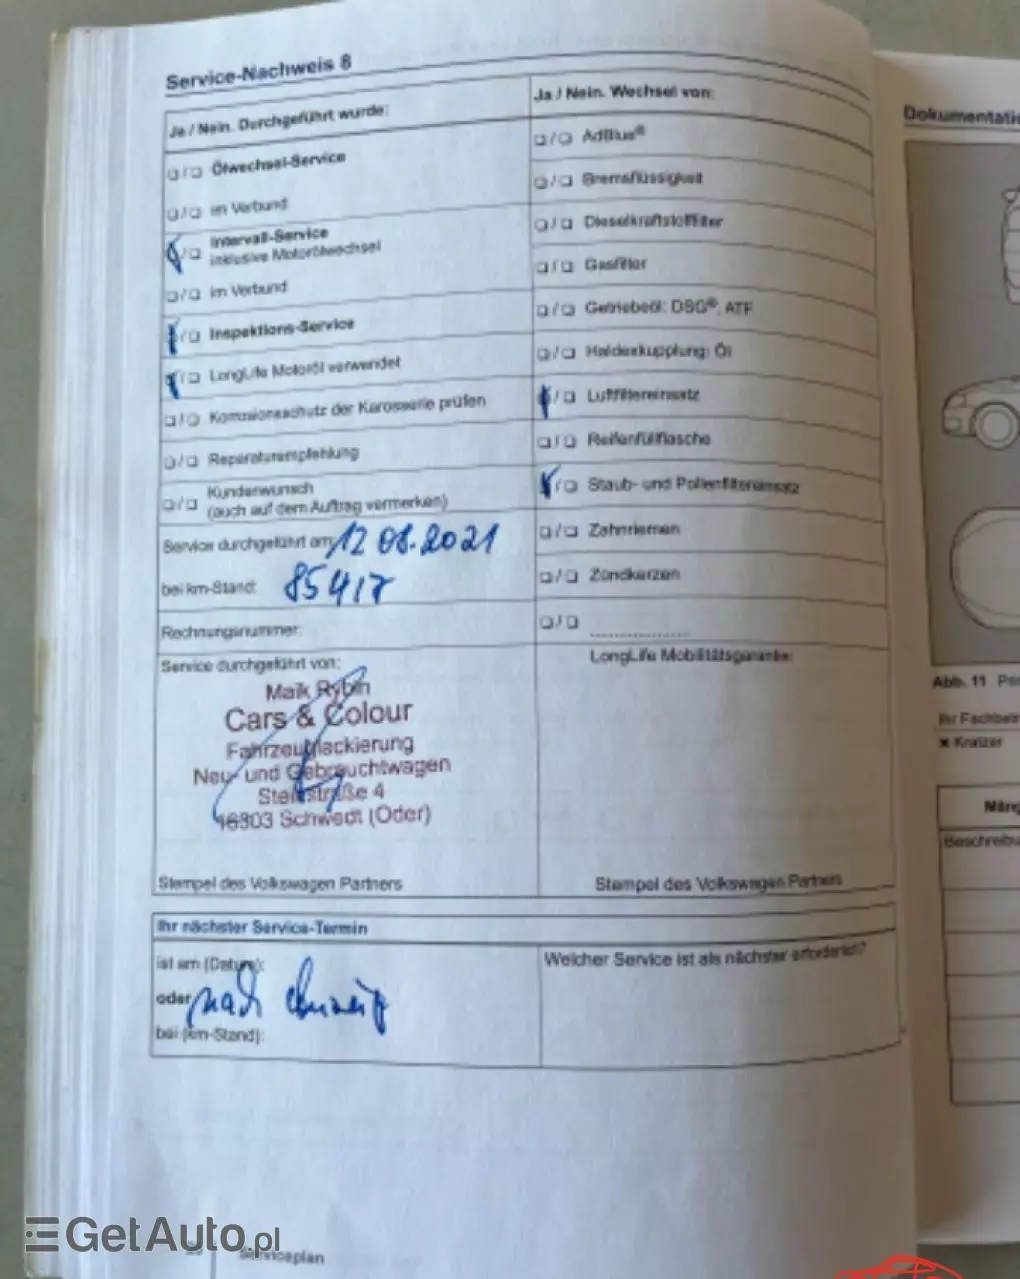 Service-Nachweis 8
Ja / Nein. Durchgeführt wurde:
❏/❏ Ölwechsel-Service
❏/❏ im Verbund
/❏ Intervall-Service
inklusive Motorölwechsel
❏/❏ im Verbund
/❏ Inspektions-Service
/❏ LongLife Motoröl verwendet
❏/❏ Korrosionsschutz der Karosserie prüfen
❏/❏ Reparaturempfehlung
❏/❏ Kundenwunsch
(auch auf dem Auftrag vermerken)
Service durchgeführt am: 12 08.2021
bei km-Stand: 85417
Rechnungsnummer:
Service durchgeführt von:
Maik Rybin
Cars & Colour
Fahrzeuglackierung
Neu- und Gebrauchtwagen
Steinstraße 4
16303 Schwedt (Oder)
Stempel des Volkswagen Partners
Ja / Nein. Wechsel von:
❏/❏ AdBlue®
❏/❏ Bremsflüssigkeit
❏/❏ Dieselkraftstofffilter
❏/❏ Gasfilter
❏/❏ Getriebeöl: DSG®, ATF
❏/❏ Haldexkupplung: Öl
/❏ Luftfiltereinsatz
❏/❏ Reifenfüllflasche
/❏ Staub- und Pollenfiltereinsatz
❏/❏ Zahnriemen
❏/❏ Zündkerzen
❏/❏ ....................
LongLife Mobilitätsgarantie:
Stempel des Volkswagen Partners
Ihr nächster Service-Termin
ist am (Datum):
oder nach
bei (km-Stand):
Welcher Service ist als nächster erforderlich?
Serviceplan
Dokumentatio
Abb. 11
Ihr Fachbetr
× Kratzer
Mäng
Beschreibu
GetAuto.pl